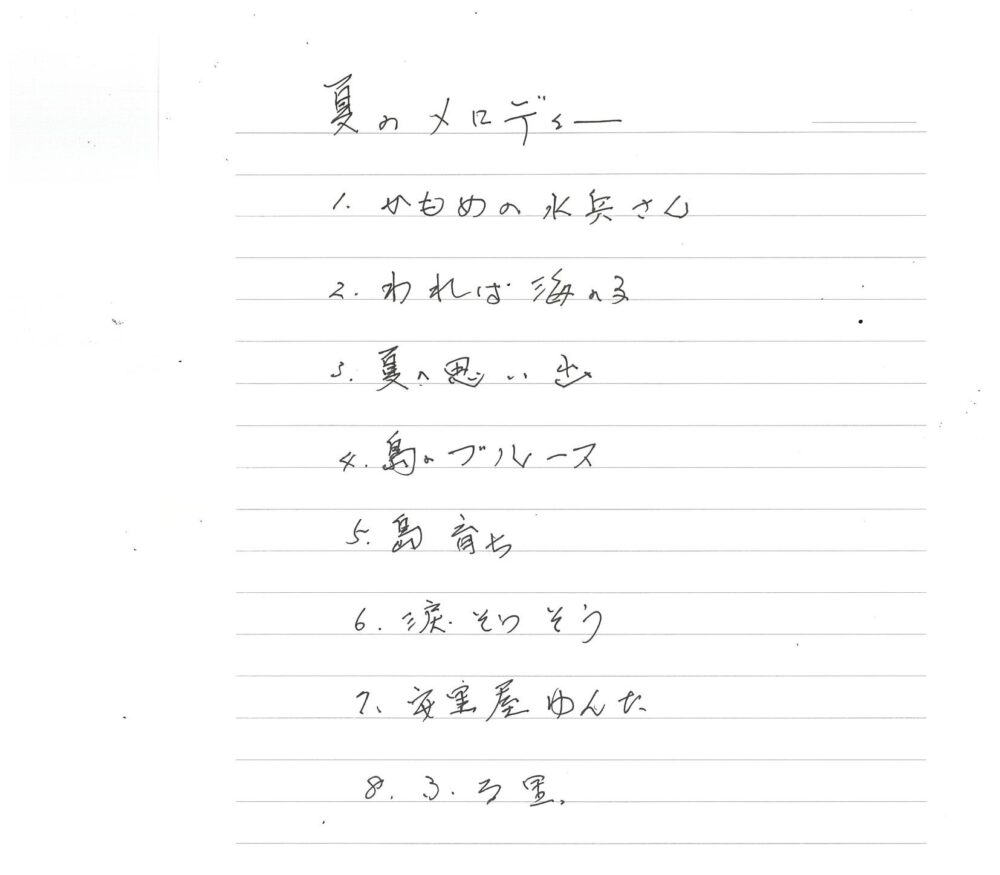 夏のメロディー
1. かもめの水兵さん
2. われは海の子
3. 夏の思い出
4. 島のブルース
5. 島育ち
6. 涙そうそう
7. 安里屋ゆんた
8. ふる里